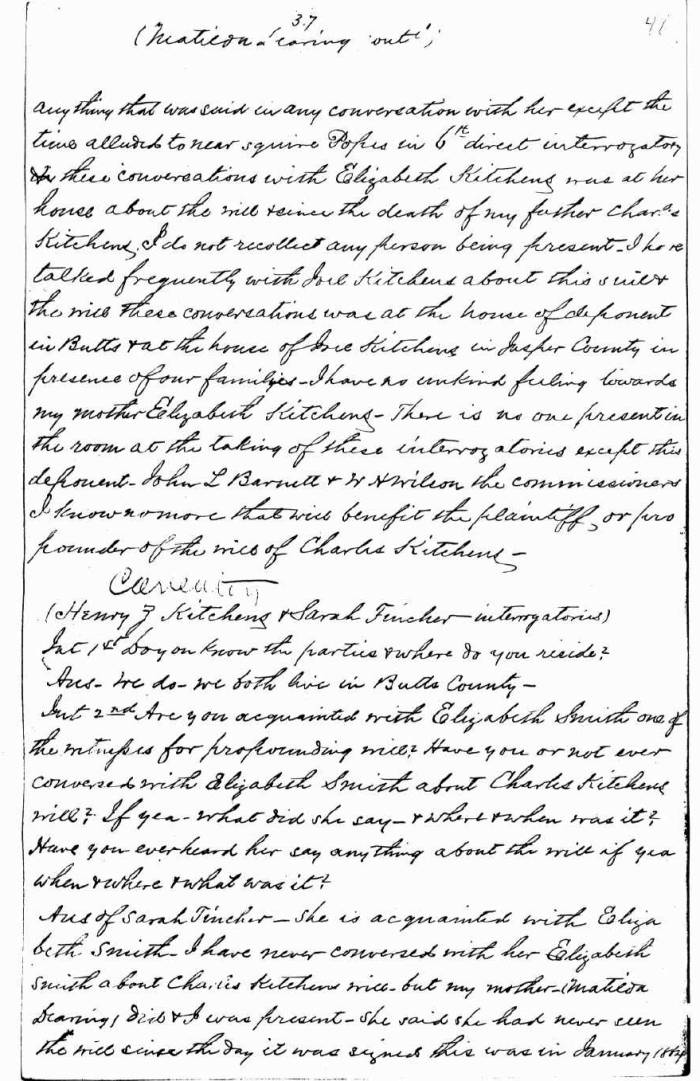 37
41
(Matilda Dearing "out");
anything that was said in any conversation with her except the
time alluded to near squire Popes in 6th direct interrogatory
In these conversations with Elizabeth Kitchens was at her
house about the will & since the death of my father Charls
Kitchens. I do not recollect any person being present - I have
talked frequently with Joel Kitchens about this suit &
the will these conversations was at the house of deponent
in Butts & at the house of Joel Kitchens in Jasper County in
presence of our families - I have no unkind feeling towards
my mother Elizabeth Kitchens - There is no one present in
the room at the taking of these interrogatories except this
deponent - John L Barnett & W H Wilson the commissioners
I know no more that will benefit the plaintiff, or pro
pounder of the will of Charles Kitchens -
(Henry Z Kitchens & Sarah Fincher - interrogatories)
Int 1st Do you know the parties & where do you reside?
Ans - We do - we both live in Butts County -
Int 2nd Are you acquainted with Elizabeth Smith one of
the witnesses for propounding will? Have you or not ever
conversed with Elizabeth Smith about Charles Kitchens
will? If yea - what did she say - & where & when was it?
Have you ever heard her say anything about the will if yea
when & where & what was it?
Ans of Sarah Fincher - She is acquainted with Eliza
beth Smith - I have never conversed with her Elizabeth
Smith about Charles Kitchens will - but my mother - (Matilda
Dearing) did & I was present - She said she had never seen
the will since the day it was signed this was in January